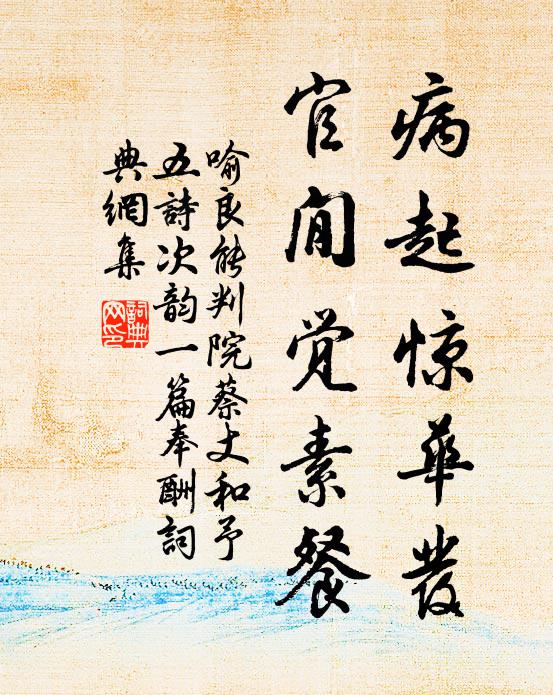 病起惊華發
官閒觉素餐
喻良能判院蔡丈和予
五詩次韵一篇奉酬詞
典網集
詞典网印